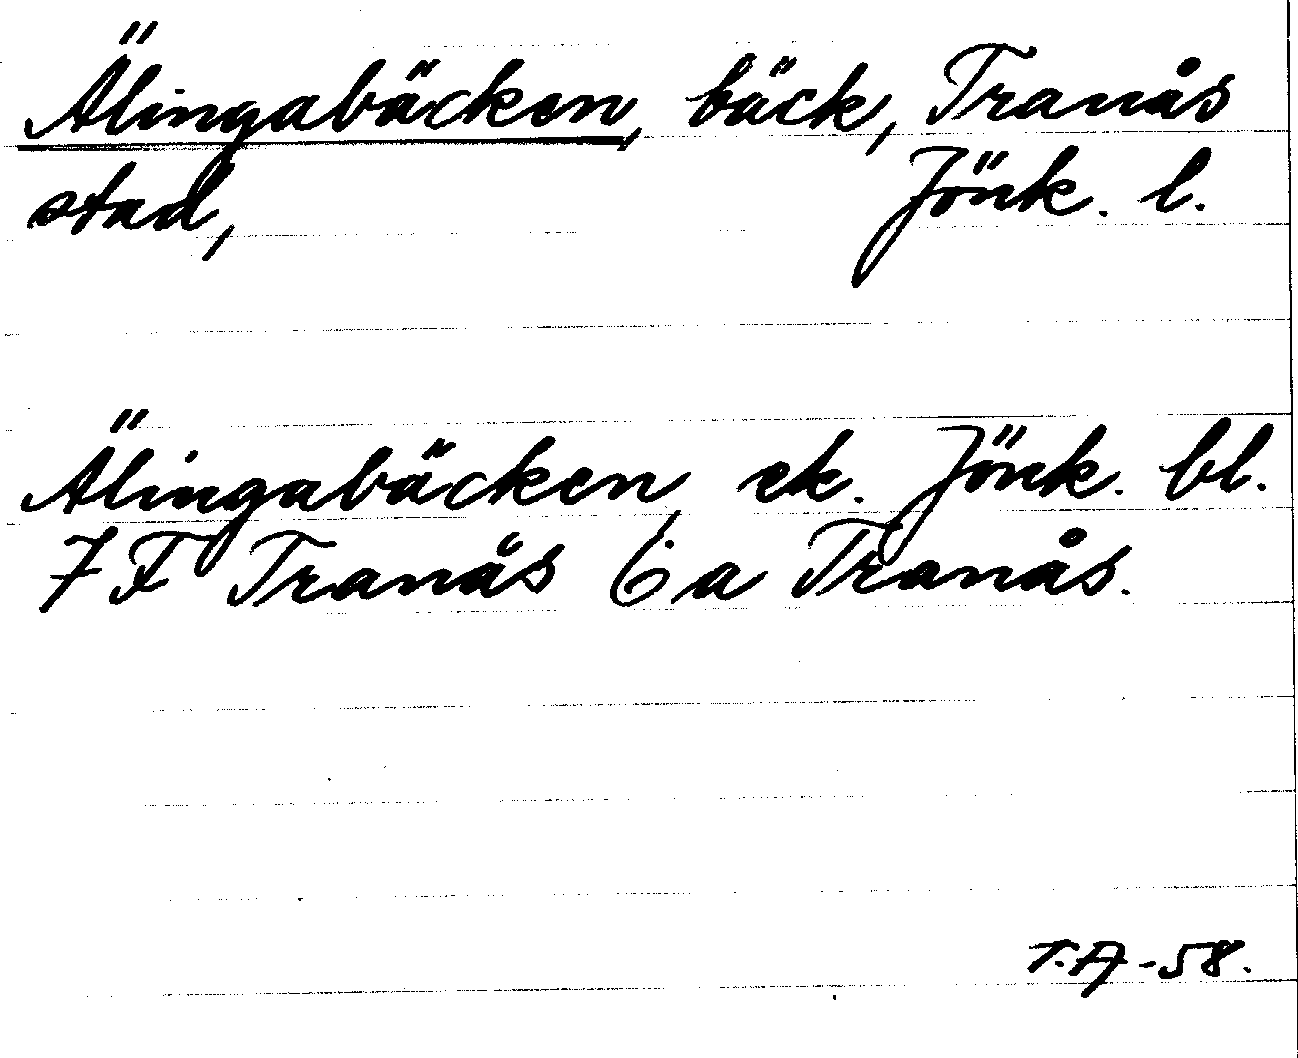 Älingabäcken, bäck, Tranås
stad, Jönk. l.
Älingabäcken, ek. Jönk. bl.
7 F Tranås 6 a Tranås.
T.A-58.